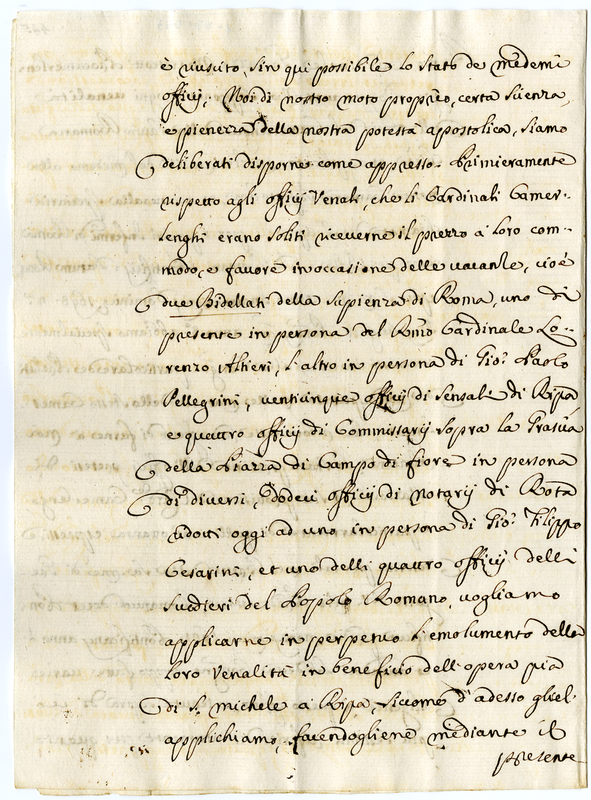 è riuscito, sin qui possibile lo stato de medemi
officij; Noi di nostro moto proprio, certa scienza,
e pienezza della nostra potestà apostolica, siamo
deliberati disporne come appresso. Primieramente
rispetto agli officij Venali, che li Cardinali Camer-
lenghi erano soliti riceverne il prezzo a loro com-
modo, e favore in occasione delle vacanze, cioè
due Bidellati della sapienza di Roma, uno di
presente in persona del Rmo Cardinale Lo-
renzo Altieri, l'altro in persona di Gio: Paolo
Pellegrini, venticinque officij di sensali di Ripa
e quattro officij di Commissarij sopra la Grascia
della Piazza di Campo di fiore in persona
di diversi, dodeci officij di notarij di Rota
ridotti oggi ad uno in persona di Gio: Filippo
Cesarini, et uno delli quattro officij delli
Scudieri del Popolo Romano, vogliamo
applicarne in perpetuo l'emolumento della
loro venalità in beneficio dell'opera pia
di S. Michele a Ripa, siccome d'adesso gliel'
applichiamo, facendogliene mediante il
presente